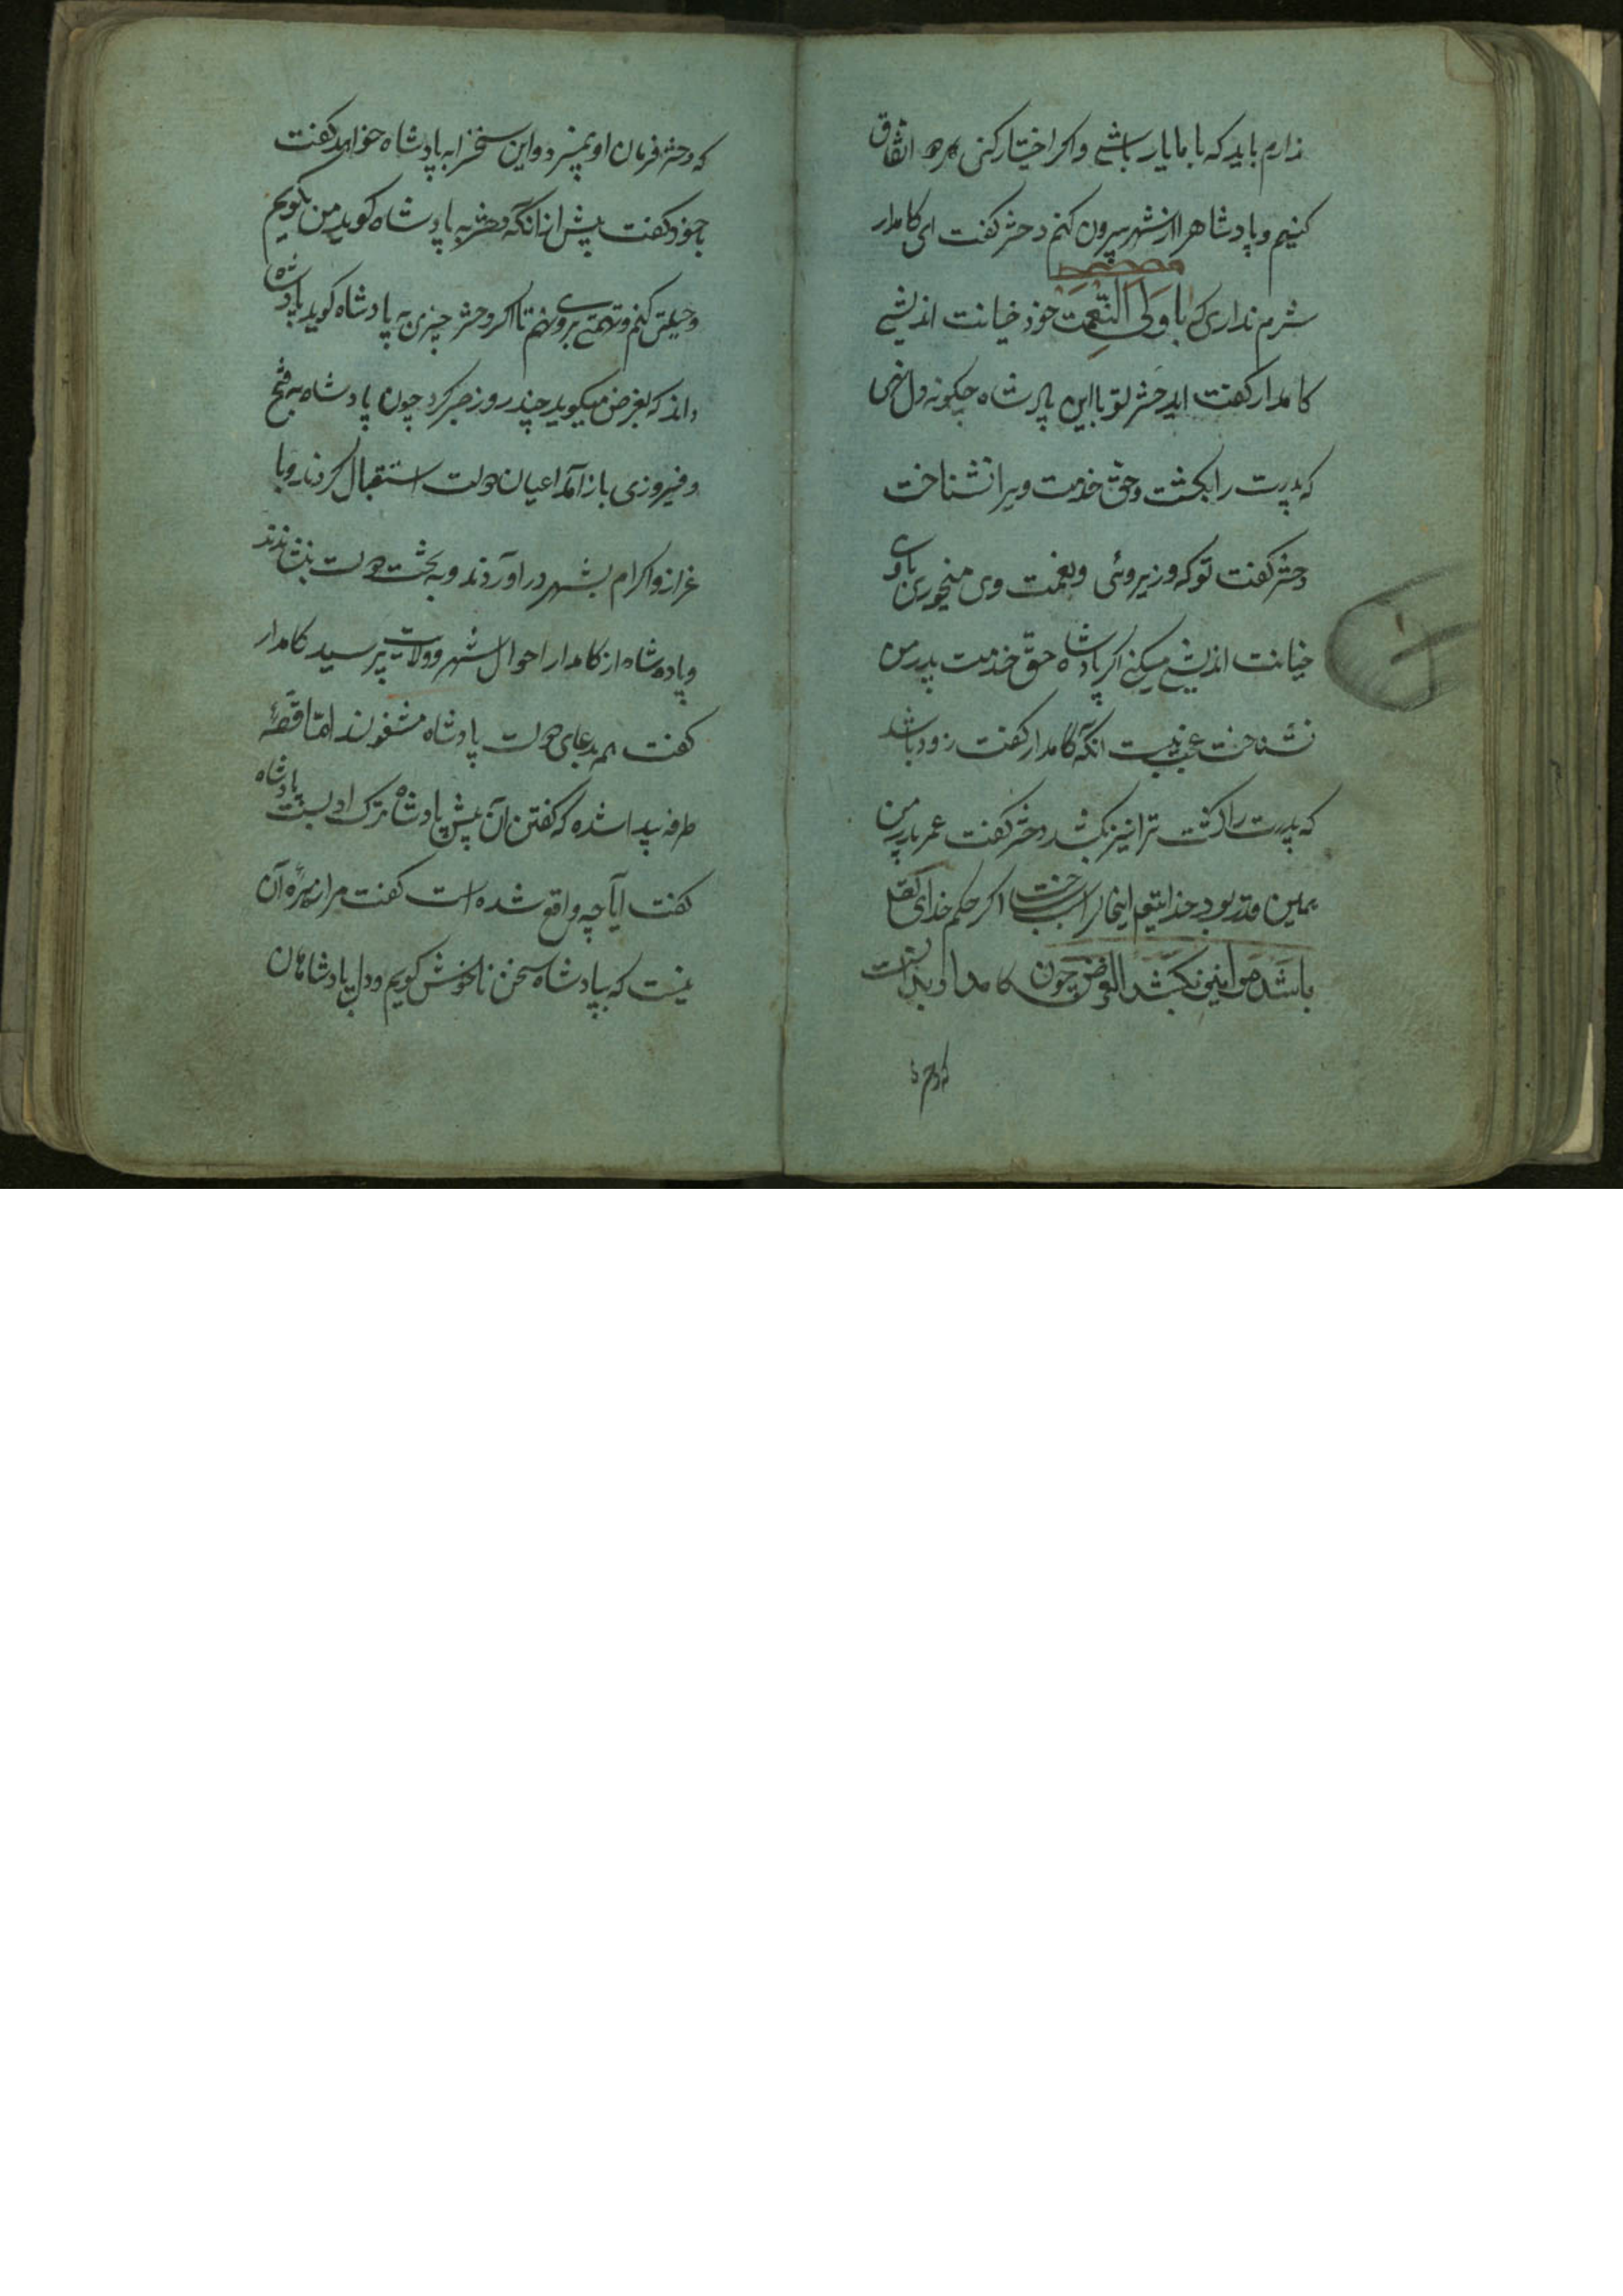 دارم باید که با ما یار باشی و اکر اختیار کنی هر دو اتفاق
کنیم و پادشاه را از شهر بیرون کنم دختر کفت ای کامدار
شرم نداری که با ولی النعمت خود خیانت اندیشی
کامدار کفت ای دختر تو با این پادشاه چکونه دل نهی
که پدرت را بکشت و حق خدمت ویرا نشناخت
دختر کفت تو که وزیر وئی و نعمت وی میخوری با وی
خیانت اندیشی میکنی اکر پادشاه حق خدمت پدر من
نشناخت عجب نیست انکه کامدار کفت زود باشد
که پدرت را کشت ترا نیز بکشد دختر کفت عمر پدر من
همین قدر بود خدایتعالی اینحال را سبب ساخت اکر حکم خدای تعالی
باشد مرا نیز بکشد الغرض چون کامدار بدانست
که دختر
که دختر فرمان او نمیبرد و این سخن را به پادشاه خواهد کفت
با خود کفت پیش از انکه دختر به پادشاه کوید من بکویم
و حیلتی کنم و تهمتی بر وی نهم تا اکر دختر چیزی به پادشاه کوید پادشاه
داند که بغرض میکوید چند روز صبر کرد چون پادشاه به فتح
و فیروزی باز آمد اعیان دولت استقبال کردند و با
عزاز و اکرام بشهر در آوردند و به تخت دولت بنشاندند
و پادشاه از کامدار احوال شهر و ولایت پرسید کامدار
کفت همه بدعای دولت پادشاه مشغولند اما قصهٔ
طرفه پیدا شده که کفتن آن پیش پادشاه ترک ادبست پادشاه
کفت آیا چه واقع شده است کفت مرا زهرهٔ آن
نیست که بپادشاه سخن ناخوش کویم و دل پادشاهان